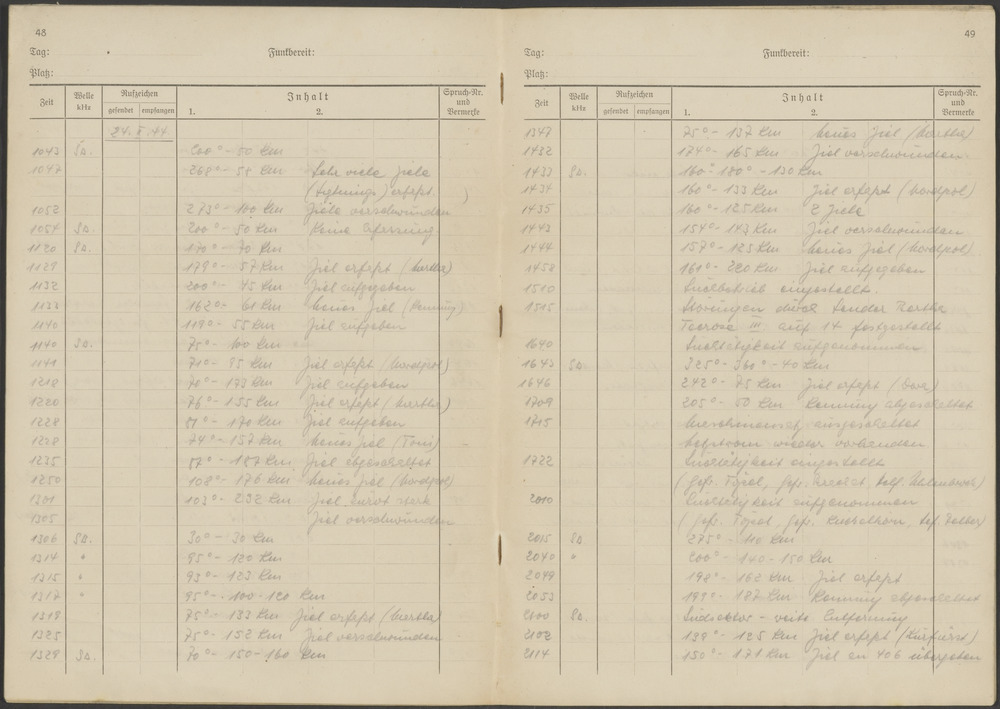 48
Tag:
Funkbereit:
Platz:
Zeit
Welle kHz
Rufzeichen
gesendet
empfangen
Inhalt
1.
2.
Spruch-Nr. und Vermerke
24. X. 44.
1043 Sd. 200° - 50 km
1047 268° - 58 km Sehr viele Ziele
erfaßt
1052 273° - 100 km Ziele verschwunden
1054 Sd. 200° - 50 km Keine Erfassung.
1120 Sd. 170° - 70 km
1129 179° - 57 km Ziel erfaßt (Martha)
1132 200° - 45 km Ziel aufgegeben
1133 162° - 61 km Neues Ziel (Kennung)
1140 119° - 55 km Ziel aufgeben
1140 Sd. 75° - 100 km
1141 71° - 95 km Ziel erfaßt (Nordpol)
1218 70° - 173 km Ziel aufgeben
1220 76° - 155 km Ziel erfaßt (Martha)
1228 81° - 170 km Ziel aufgeben
1228 74° - 157 km Neues Ziel (Toni)
1235 87° - 187 km Ziel abgeschaltet
1250 108° - 176 km Neues Ziel (Nordpol)
1301 103° - 232 km Ziel kurvt stark
1305 Ziel verschwunden
1306 Sd. 30° - 30 km
1314 " 95° - 120 km
1315 " 93° - 123 km
1317 " 95° - 100 - 120 km
1319 75° - 133 km Ziel erfaßt (Martha)
1325 75° - 152 km Ziel verschwunden
1329 Sd. 70° - 150 - 160 km
49
Tag:
Funkbereit:
Platz:
Zeit
Welle kHz
Rufzeichen
gesendet
empfangen
Inhalt
1.
2.
Spruch-Nr. und Vermerke
1347 75° - 137 km Neues Ziel (Martha)
1432 174° - 165 km Ziel verschwunden
1433 Sd. 160° - 180° - 130 km
1434 160° - 133 km Ziel erfaßt (Nordpol)
1435 160° - 125 km 2 Ziele
1443 154° - 143 km Ziel verschwunden
1444 157° - 123 km Neues Ziel (Nordpol)
1458 161° - 220 km Ziel aufgegeben
1510 Suchbetrieb eingestellt.
1515 Störungen durch Sender
III auf 14 festgestellt
1640 Suchtätigkeit aufgenommen
1643 Sd. 325° - 360° - 40 km
1646 242° - 75 km Ziel erfaßt (Dora)
1709 205° - 50 km Kennung abgeschaltet
1715 Maschinensatz ausgeschaltet
Netzstrom wieder vorhanden
1722 Suchtätigkeit eingestellt
2010 Suchtätigkeit aufgenommen
2015 Sd. 275° - 110 km
2040 " 200° - 140 - 150 km
2049 198° - 162 km Ziel erfaßt
2053 199° - 187 km Kennung abgeschaltet
2100 Sd. Südsektor - weite Entfernung
2102 139° - 125 km Ziel erfaßt (Kurfürst)
2114 150° - 171 km Ziel an 406 übergeben